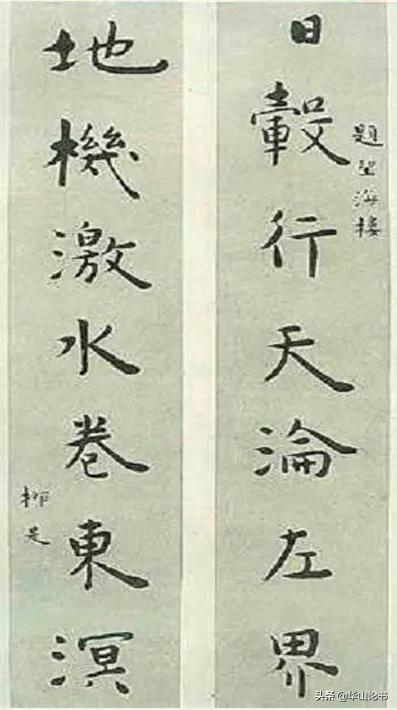 日轂行天淪左界
題望海樓
地機激水卷東溟
柳是
头条@华山论书